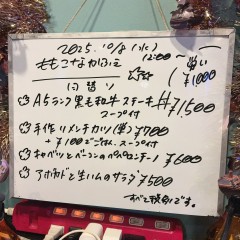 2025.10/8(水)
ももこなかなに
12:00～
¥1,000
☆ A5ランク黒毛和牛ステーキ ¥1,500
スープ付
☆ 手作りメンチカツ(単)¥700
+¥100でごはん、スープ付
☆ キャベツとベーコンのペペロンチーノ ¥600
☆ アボカドと生ハムのサラダ ¥500
すべて税別です。